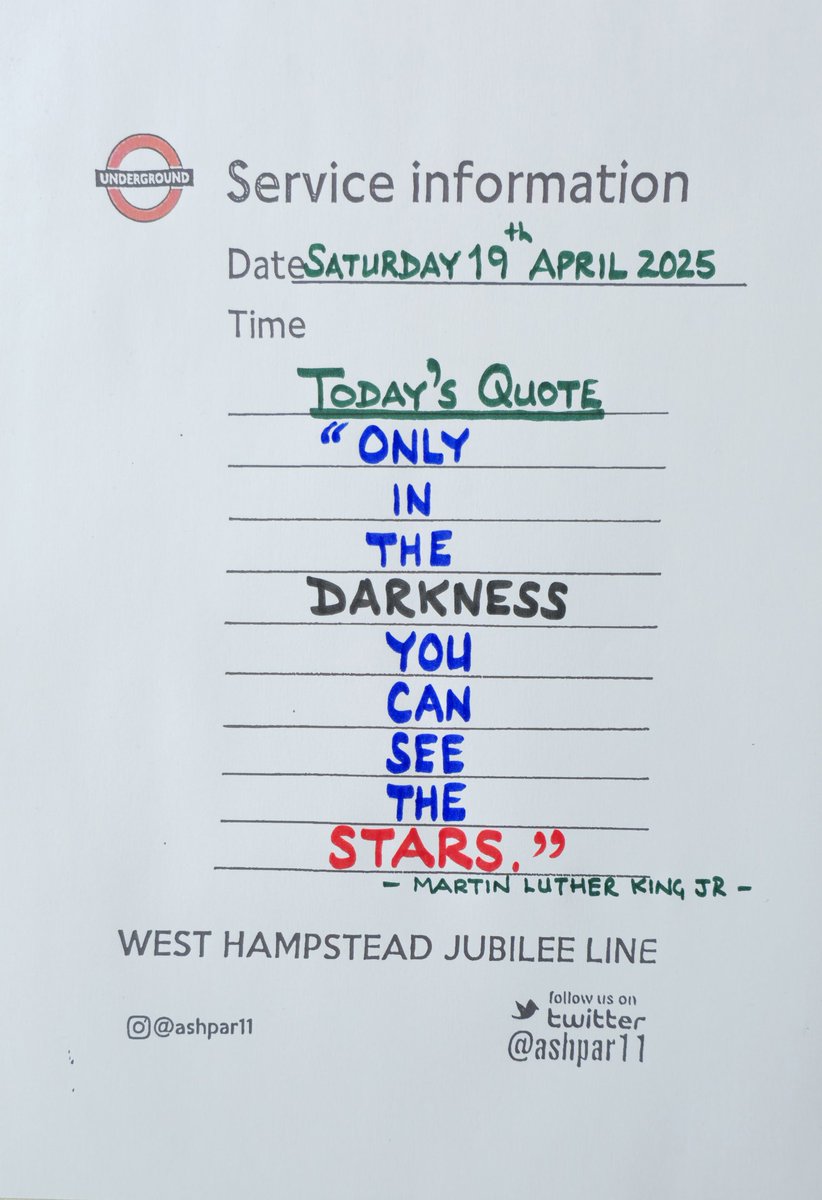 UNDERGROUND
Service information
Date SATURDAY 19th APRIL 2025
Time
TODAY'S QUOTE
“ONLY
IN
THE
DARKNESS
YOU
CAN
SEE
THE
STARS.”
- MARTIN LUTHER KING JR -
WEST HAMPSTEAD JUBILEE LINE
@ashpar11
follow us on
twitter
@ashpar11